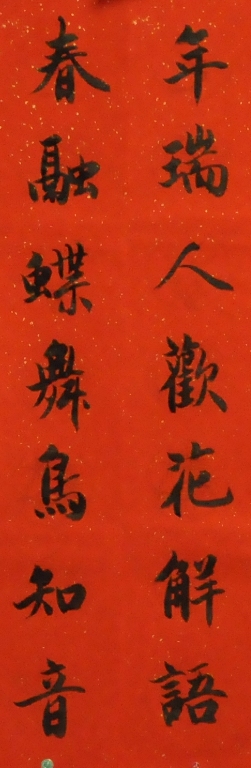 年瑞人歡花解語
春融蝶舞鳥知音